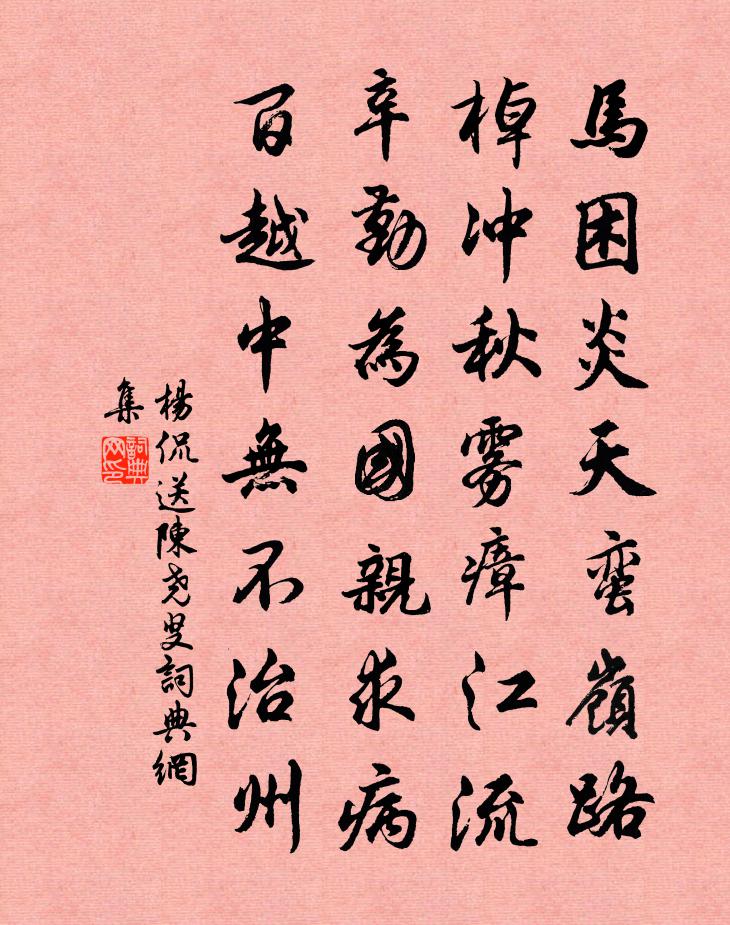 馬困炎天蛮嶺路
棹冲秋雾瘴江流
辛勤為國親求病
百越中無不治州
楊侃送陳尧叟詞典網
集
詞典网印